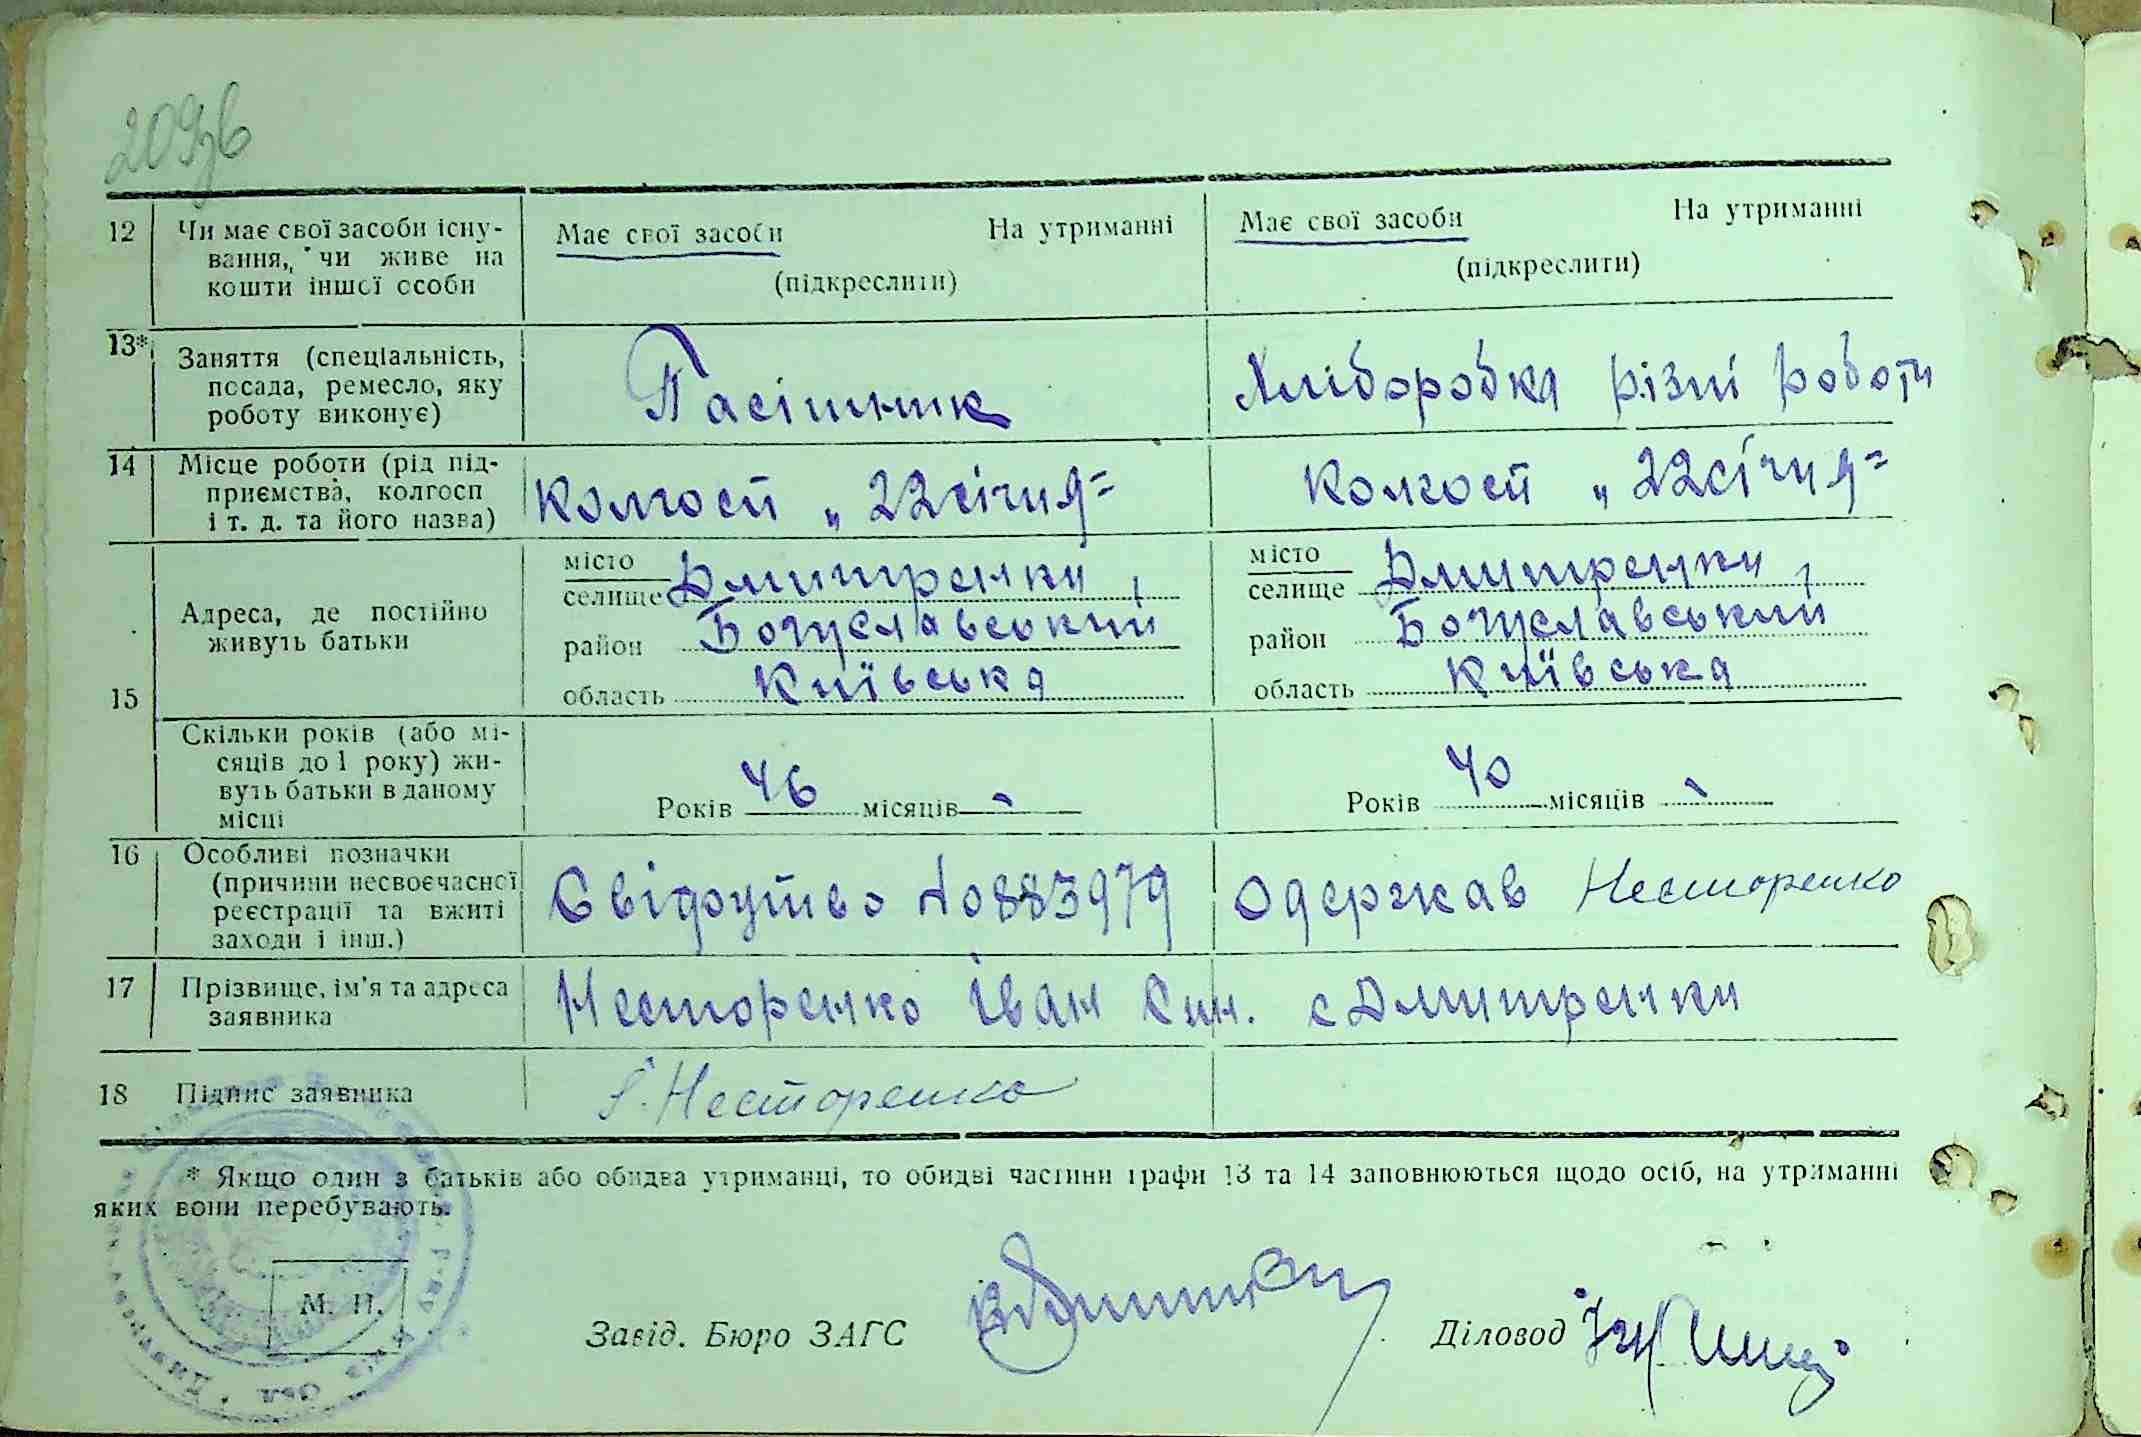 209зв
12 Чи має свої засоби існу- Має свої засоби На утриманні Має свої засоби На утриманні
вання, чи живе на (підкреслити) (підкреслити)
кошти іншої особи
13* Заняття (спеціальність, Пасішник Хліборобка різні роботи
посада, ремесло, яку
роботу виконує)
14 Місце роботи (рід під- Колгосп „22січня" Колгосп „22січня"
приємства, колгосп
і т. д. та його назва)
15 Адреса, де постійно місто селище Дмитренки, місто селище Дмитренки,
живуть батьки район Богуславський район Богуславський
область Київська область Київська
Скільки років (або мі- Років 46 місяців - Років 40 місяців -
сяців до 1 року) жи-
вуть батьки в даному
місці
16 Особливі позначки Свідоцтво №883979 Одержав Несторенко
(причини несвоєчасної
реєстрації та вжиті
заходи і інш.)
17 Прізвище, ім'я та адреса Несторенко Іван Син. с Дмитренки
заявника
18 Підпис заявника І. Несторенко
* Якщо один з батьків або обидва утриманці, то обидві частини графи 13 та 14 заповнюються щодо осіб, на утриманні
яких вони перебувають.
М. П.
Завід. Бюро ЗАГС Діловод